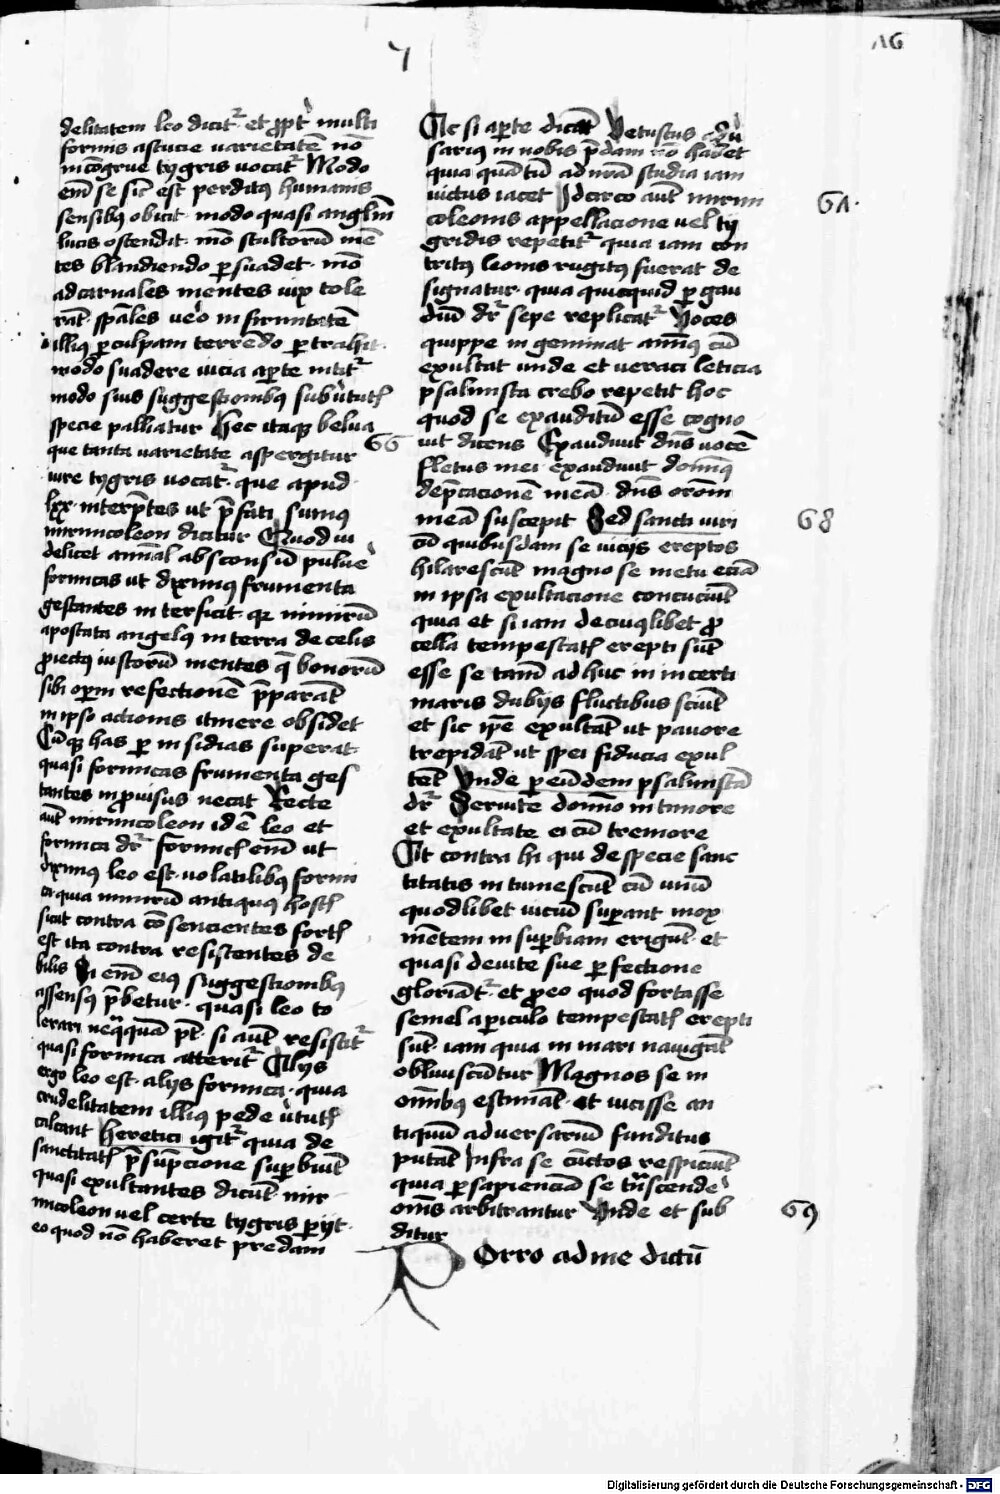 7
16
delitatem leo dicit᷑ et ꝓpt̉ multi
formis astucie varietatē nō
incōgrue tygris vocat᷑ Modo
em̄ se sic̄ est perditꝰ humanis
sensibꝰ obicit· modo quasi anglm̄
lucis ostendit· mō stultorū mē
tes blandiendo ꝑsuadet· mō
ad carnales mentes vix tole
rat̄· sp̄ales ūo in firmitatē
illiꝰ ꝑ culpam terrēdo ꝑtrahit·
modo suadere vicia aꝑte nitit᷑
modo suis suggestionibꝰ sub ỽtutꝭ
specie palliatur Hec itaqꝫ belua
66
que tanta varietate aspergitur
iure tygris vocat᷑· que apud
lxx· interp̄tes ut p̄fati sumꝰ
mirmicoleon dicitur Quod vi
delicet anim̄al absconsū puluē
formicas ut diximꝰ frumenta
gestantes in terficit· qꝛ nimirū
apostata angelꝰ in terra de celis
ꝓiectꝰ iustorū mentes q̄ bonorū
sibi oꝑm refectionē p̄parāt
in ipso actionis itinere obsidet
Cūqꝫ has ꝑ in sidias superat·
quasi formicas frumenta ges
tantes inꝓuisus necat Recte
aūt mirmicoleon id ē leo et
formica dr᷑ formicꝭ em̄ ut
diximꝰ leo est· volatilibꝰ formi
ca· quia nimirū antiquꝰ hostꝭ
sicut contra cōsencientes fortꝭ
est ita contra resistentes de
bilis Si em̄ eiꝰ suggestionibꝰ
assensꝰ p̄betur· quasi leo to
lerari neq̄quā pt̄· si aūt resistit᷑
quasi formica atterit᷑ Alijs
ergo leo est· alijs formica· quia
crudelitatem illiꝰ pede ỽtutꝭ
calcant heretici igit᷑ quia de
sanctitatꝭ p̄sūpcione suꝑbiūt
quasi exultantes dicūt· mir
micoleon vel certe tygris ꝑijt·
eo quod nō haberet predam
Ac si aꝑte dicāt Vetustus adū
sariꝰ in nobis p̄dam nō habet
quia quātū ad nr̄a studia iam
victus iacet Idcirco aūt mirmi
67·
coleonis appellacione vel ty
gridis repetit᷑ quia iam con
tritꝰ leonis rugitꝰ fuerat de
signatur· quia quicquid ꝑ gau
diū dr᷑ sepe replicat᷑ Voces
quippe in geminat animꝰ cū
exultat unde et veraci leticia
psalmista crebo repetit hoc
quod se exauditū esse cogno
uit dicens Exaudiuit dn̄s vocē
fletus mei· exaudiuit dominꝰ
dep̄cacionē meā· dn̄s orōm
meā suscepit Sed sancti viri
68
cū quibusdam se vicijs ereptos
hilarescūt magno se metu eciā
in ipsa exultacione concuciūt
quia et si iam de cuiuslibet ꝓ
cella tempestatꝭ erepti sūt
esse se tam̄ ad huc in incerti
maris dubijs fluctibus sciūt
et sic ip̄e exultāt ut pauore
trepidāt ut spei fiducia exul
tēt Vnde ꝑ eūdem psalmistā
dr᷑ Seruite domino in timore
et exultate ei cū tremore
At contra hi qui de specie sanc
titatis in tumescūt cū vnū
quodlibet viciū suꝑant mox
mētem in suꝑbiam erigūt· et
quasi de vite sue ꝑfectione
gloriāt᷑· et ꝓ eo quod fortasse
semel a ꝑiculo tempestatꝭ erepti
sūt· iam quia in mari nauigāt
obliuiscūtur Magnos se in
om̄ibꝰ estimāt· et vicisse an
tiquū aduersariū funditus
putāt Infra se cūctos respiciūt
quia ꝑ sapienciā se tn̄scende
om̄s arbitrantur Vnde et sub
69
ditur
Porro ad me dictū
Digitalisierung gefördert durch die Deutsche Forschungsgemeinschaft - DFG